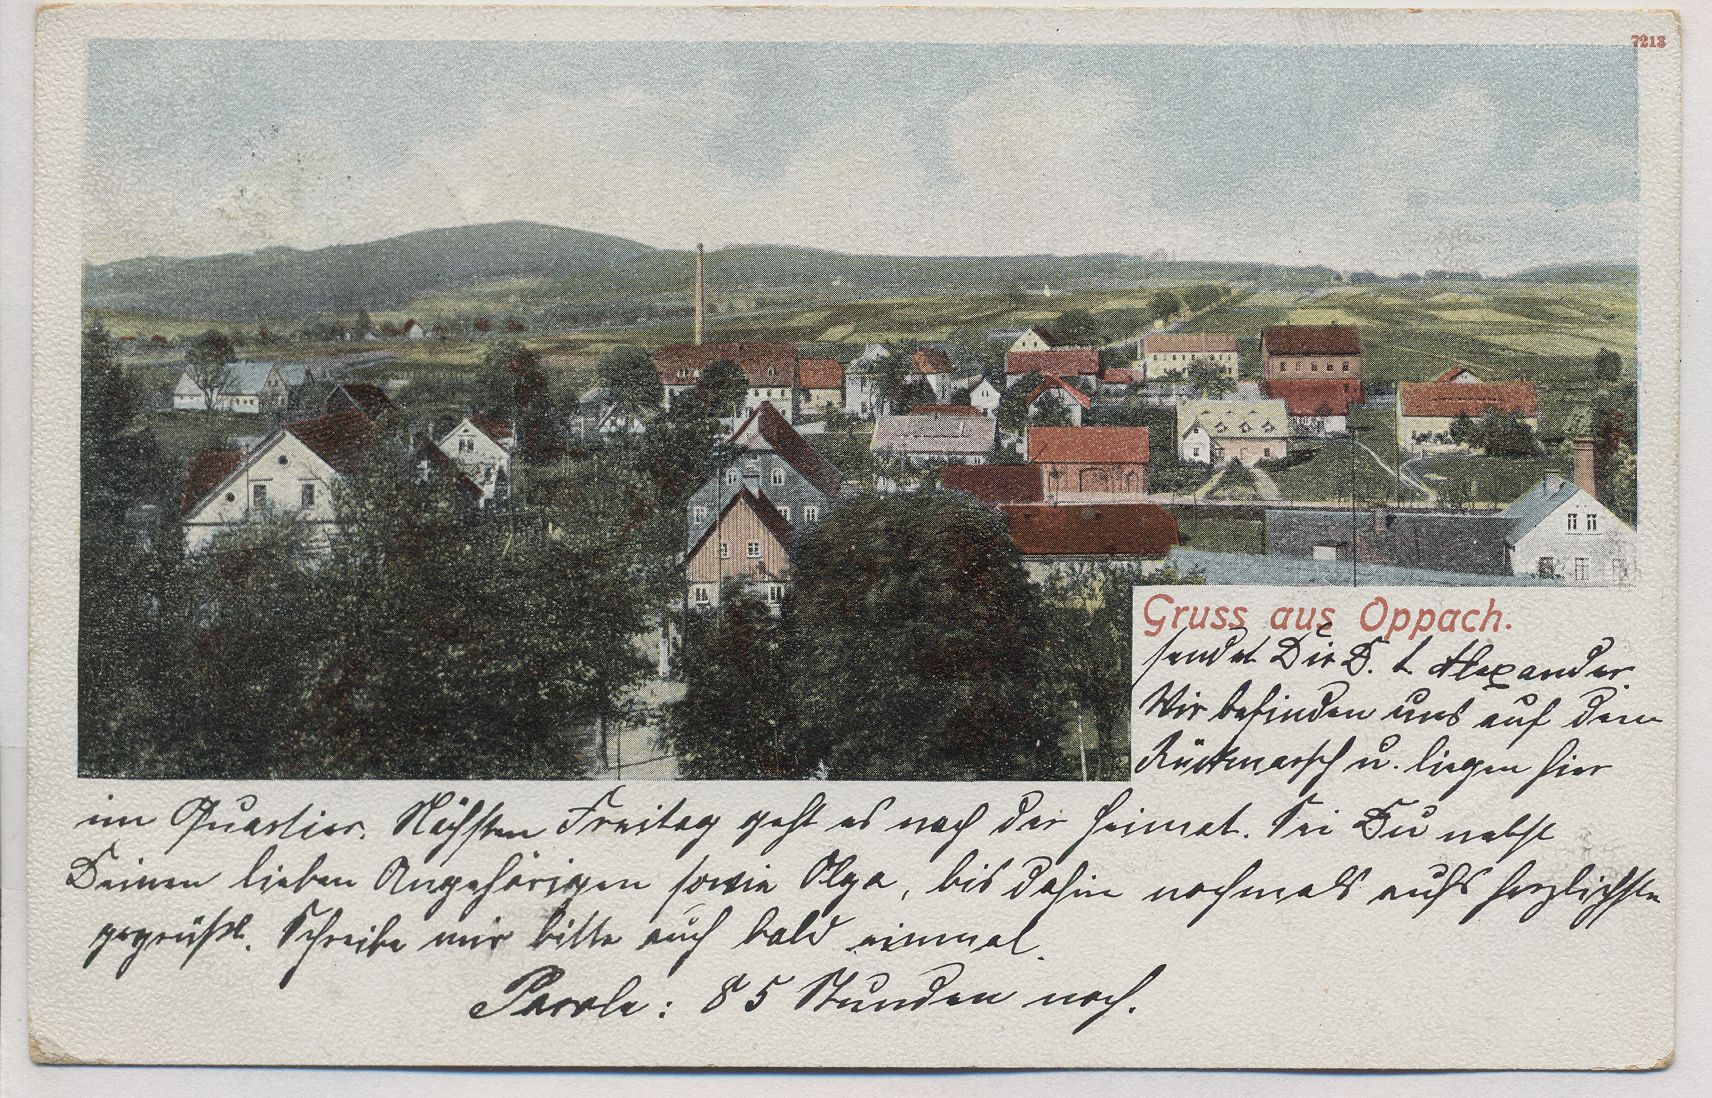 7213
Gruss aus Oppach.
sendet Dir D. l. Alexander
Wir befinden uns auf dem
Rückmarsch u. liegen hier
im Quartier. Nächsten Freitag geht es nach der Heimat. Sei Du nebst
Deinen lieben Angehörigen sowie Olga, bis dahin nochmals aufs herzlichste
gegrüßt. Schreibe mir bitte auch bald einmal.
Parole: 85 Stunden noch.